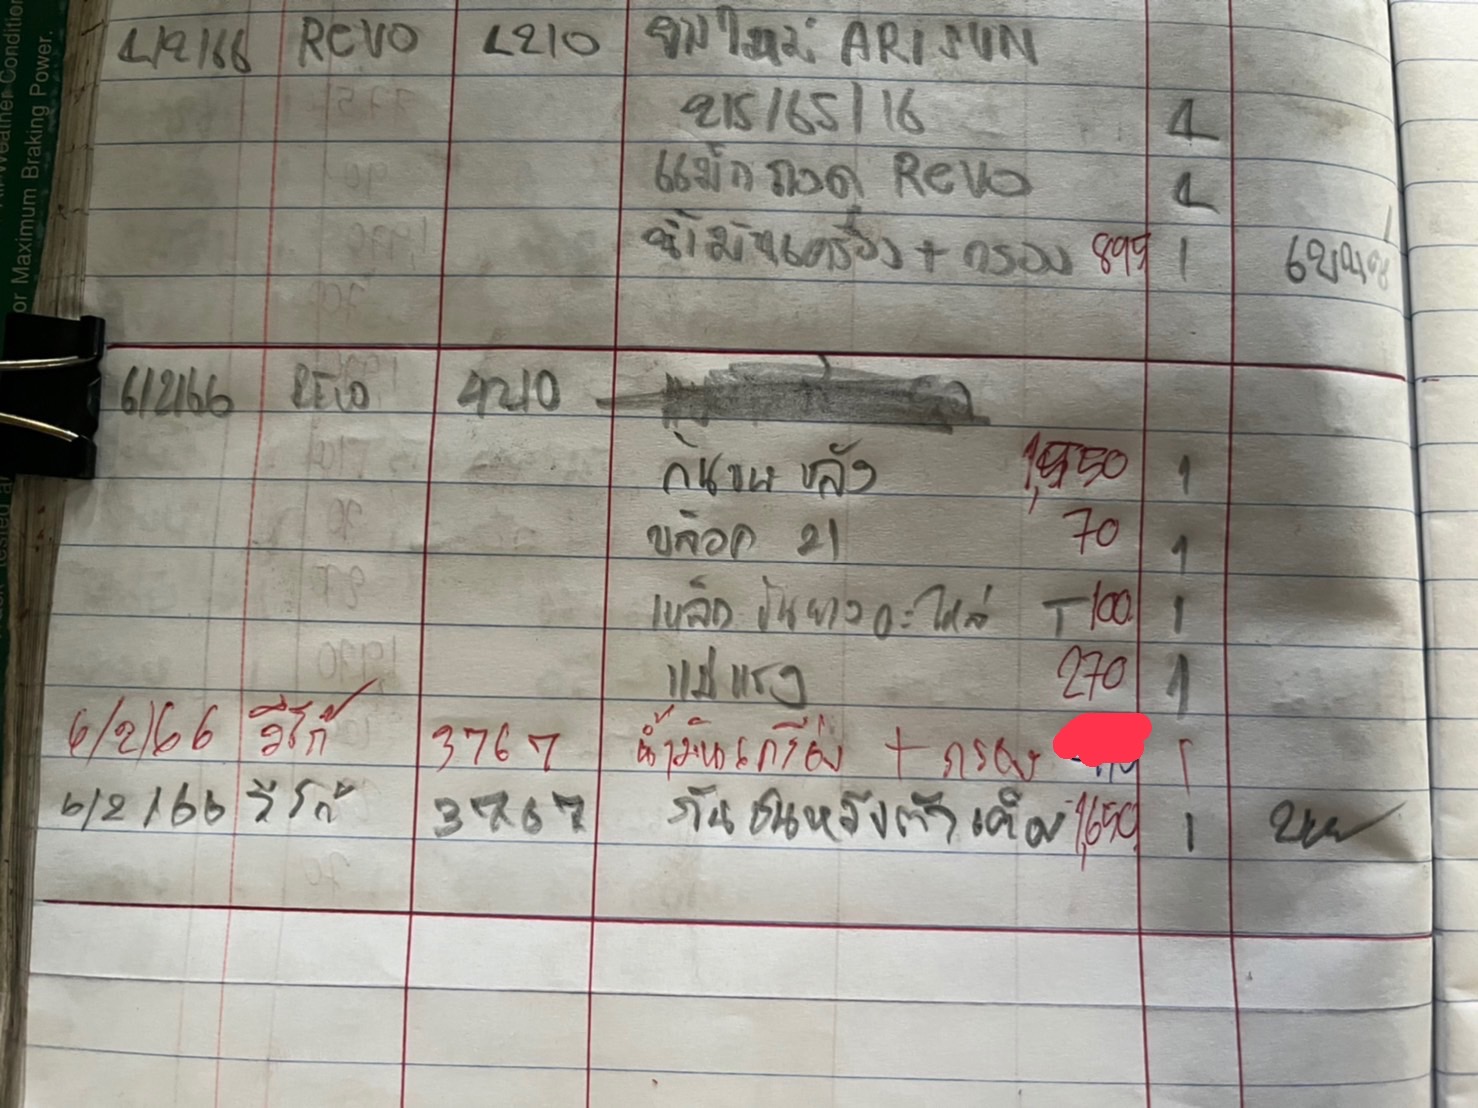 Weather Condition
or Maximum Braking Power.
4/2/66 REVO 4210 ยางใหม่ ARISUN
215/65/16 4
แม็กถอด Revo 4
น้ำมันเครื่อง + กรอง 899 1
6/2/66 REVO 4210
กันชนหลัง 1,550 1
บล๊อก 21 70 1
เหล็กขันยางอะไหล่ T 100 1
แม่แรง 270 1
6/2/66 วีโก้ 3767 น้ำมันเครื่อง + กรอง 1
6/2/66 วีโก้ 3767 กันชนหลังตัวเต็ม 1,650 1